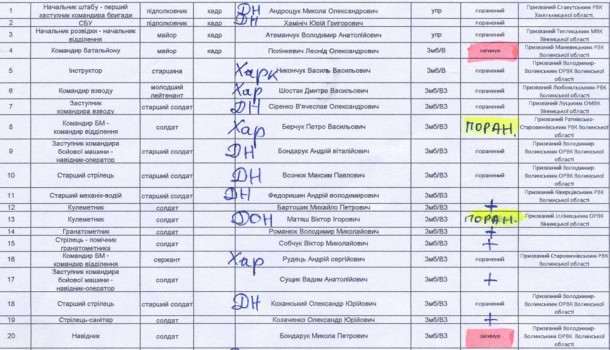 1 Начальник штабу - перший заступник командира бригади підполковник кадр ДН Андрощук Микола Олександрович упр поранений Призваний Славутським РВК Хмельницької області.
2 СБУ підполковник кадр Хамініч Юрій Григорович поранений
3 Начальник розвідки - начальник відділення майор кадр Атаманчук Володимир Анатолійович упр поранений Призваний Теплицьким МВК Вінницької області
4 Командир батальйону майор кадр Полінкевич Леонід Олександрович 3мб/В загинув Призваний Маневицьким РВК Волинської області
5 Інструктор старшина Харк Никончук Василь Васильович 3мб/В поранений Призваний Володимир-Волинським ОРВК Волинської області
6 Командир взводу молодший лейтенант Хар Шостак Дмитро Васильович 3мб/В3 поранений Призваний Любомльським РВК Волинської області
7 Заступник командира взводу старший солдат ДН Сіренко В'ячеслав Олександрович 3мб/В3 поранений Призваний Луцьким ОМВК Волинської області
8 Командир БМ - командир відділення солдат Хар Берчук Петро Васильович 3мб/В3 ПОРАН. Призваний Ратнівсько-Старовижівським РВК Волинської області
9 Заступник командира бойової машини - навідник-оператор солдат ДН Бондарук Андрій віталійович 3мб/В3 поранений Призваний Володимир-Волинським ОРВК Волинської області
10 Старший стрілець старший солдат ДН Вознюк Максим Павлович 3мб/В3 поранений Призваний Володимир-Волинським ОРВК Волинської області
11 Старший механік-водій старший солдат ДН Федоришин Андрій володимирович 3мб/В3 поранений Призваний Ківерцівським РВК Волинської області
12 Кулеметник солдат Бартошик Михайло Петрович 3мб/В3 +
13 Кулеметник солдат ДОН Матяш Віктор Ігорович 3мб/В3 ПОРАН. Призваний Іллінецьким ОРВК Вінницької області
14 Гранатометник солдат Романюк Володимир Миколайович 3мб/В3 +
15 Стрілець - помічник гранатометника солдат Собчук Віктор Миколайович 3мб/В3 +
16 Командир БМ - командир відділення сержант Хар Рудець Андрій сергійович 3мб/В3 поранений Призваний Старовижівським РВК Волинської області
17 Заступник командира бойової машини - навідник-оператор солдат Сущик Вадим Анатолійович 3мб/В3 +
18 Старший стрілець старший солдат ДН Коханський Олександр Юрійович 3мб/В3 поранений Призваний Володимир-Волинським ОРВК Волинської області
19 Стрілець-санітар солдат Козаченко Олександр Юрійович 3мб/В3 +
20 Навідник солдат Бондарук Микола Петрович 3мб/В3 загинув Призваний Володимир-Волинським ОРВК Волинської області